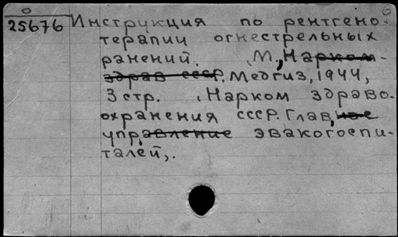 25676 Инструкция по рентгено-
терапии огнестрельных
ранений. М., Нарком-
здрав СССР, Медгиз, 1944,
3 стр. Нарком здраво-
охранения СССР. Глав,ное
управление эвакогоспи-
талей,.